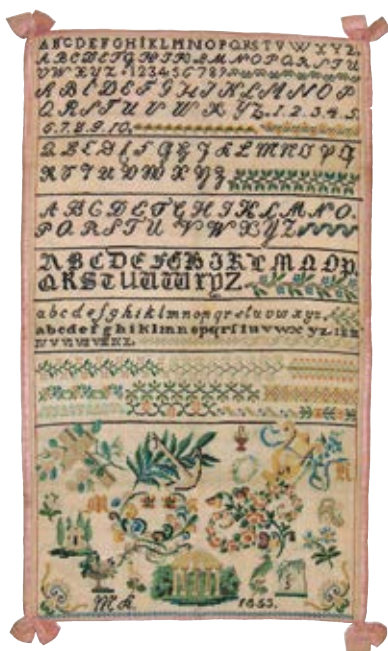 ABCDEFGHIKLMNOPQRSTVWXYZ.
ABCDEFGHIKLMNOPQRSTU
VWXYZ.123456789
ABCDEFGHIKLMNOP
QRSTUVWXYZ.1.2.3.4.5.
6.7.8.9.10.
ABCDEFGHJKLMNOPQ
RSTUVWXYZ
ABCDEFGHIKLMNO.
PQRSTUVWXYZ
ABCDEFGHIKLMNOP
QRSTUVWXYZ
abcdefghiklmnopqrstuvwxyz.
abcdefghiklmnopqrstuvwxyz.
1853.